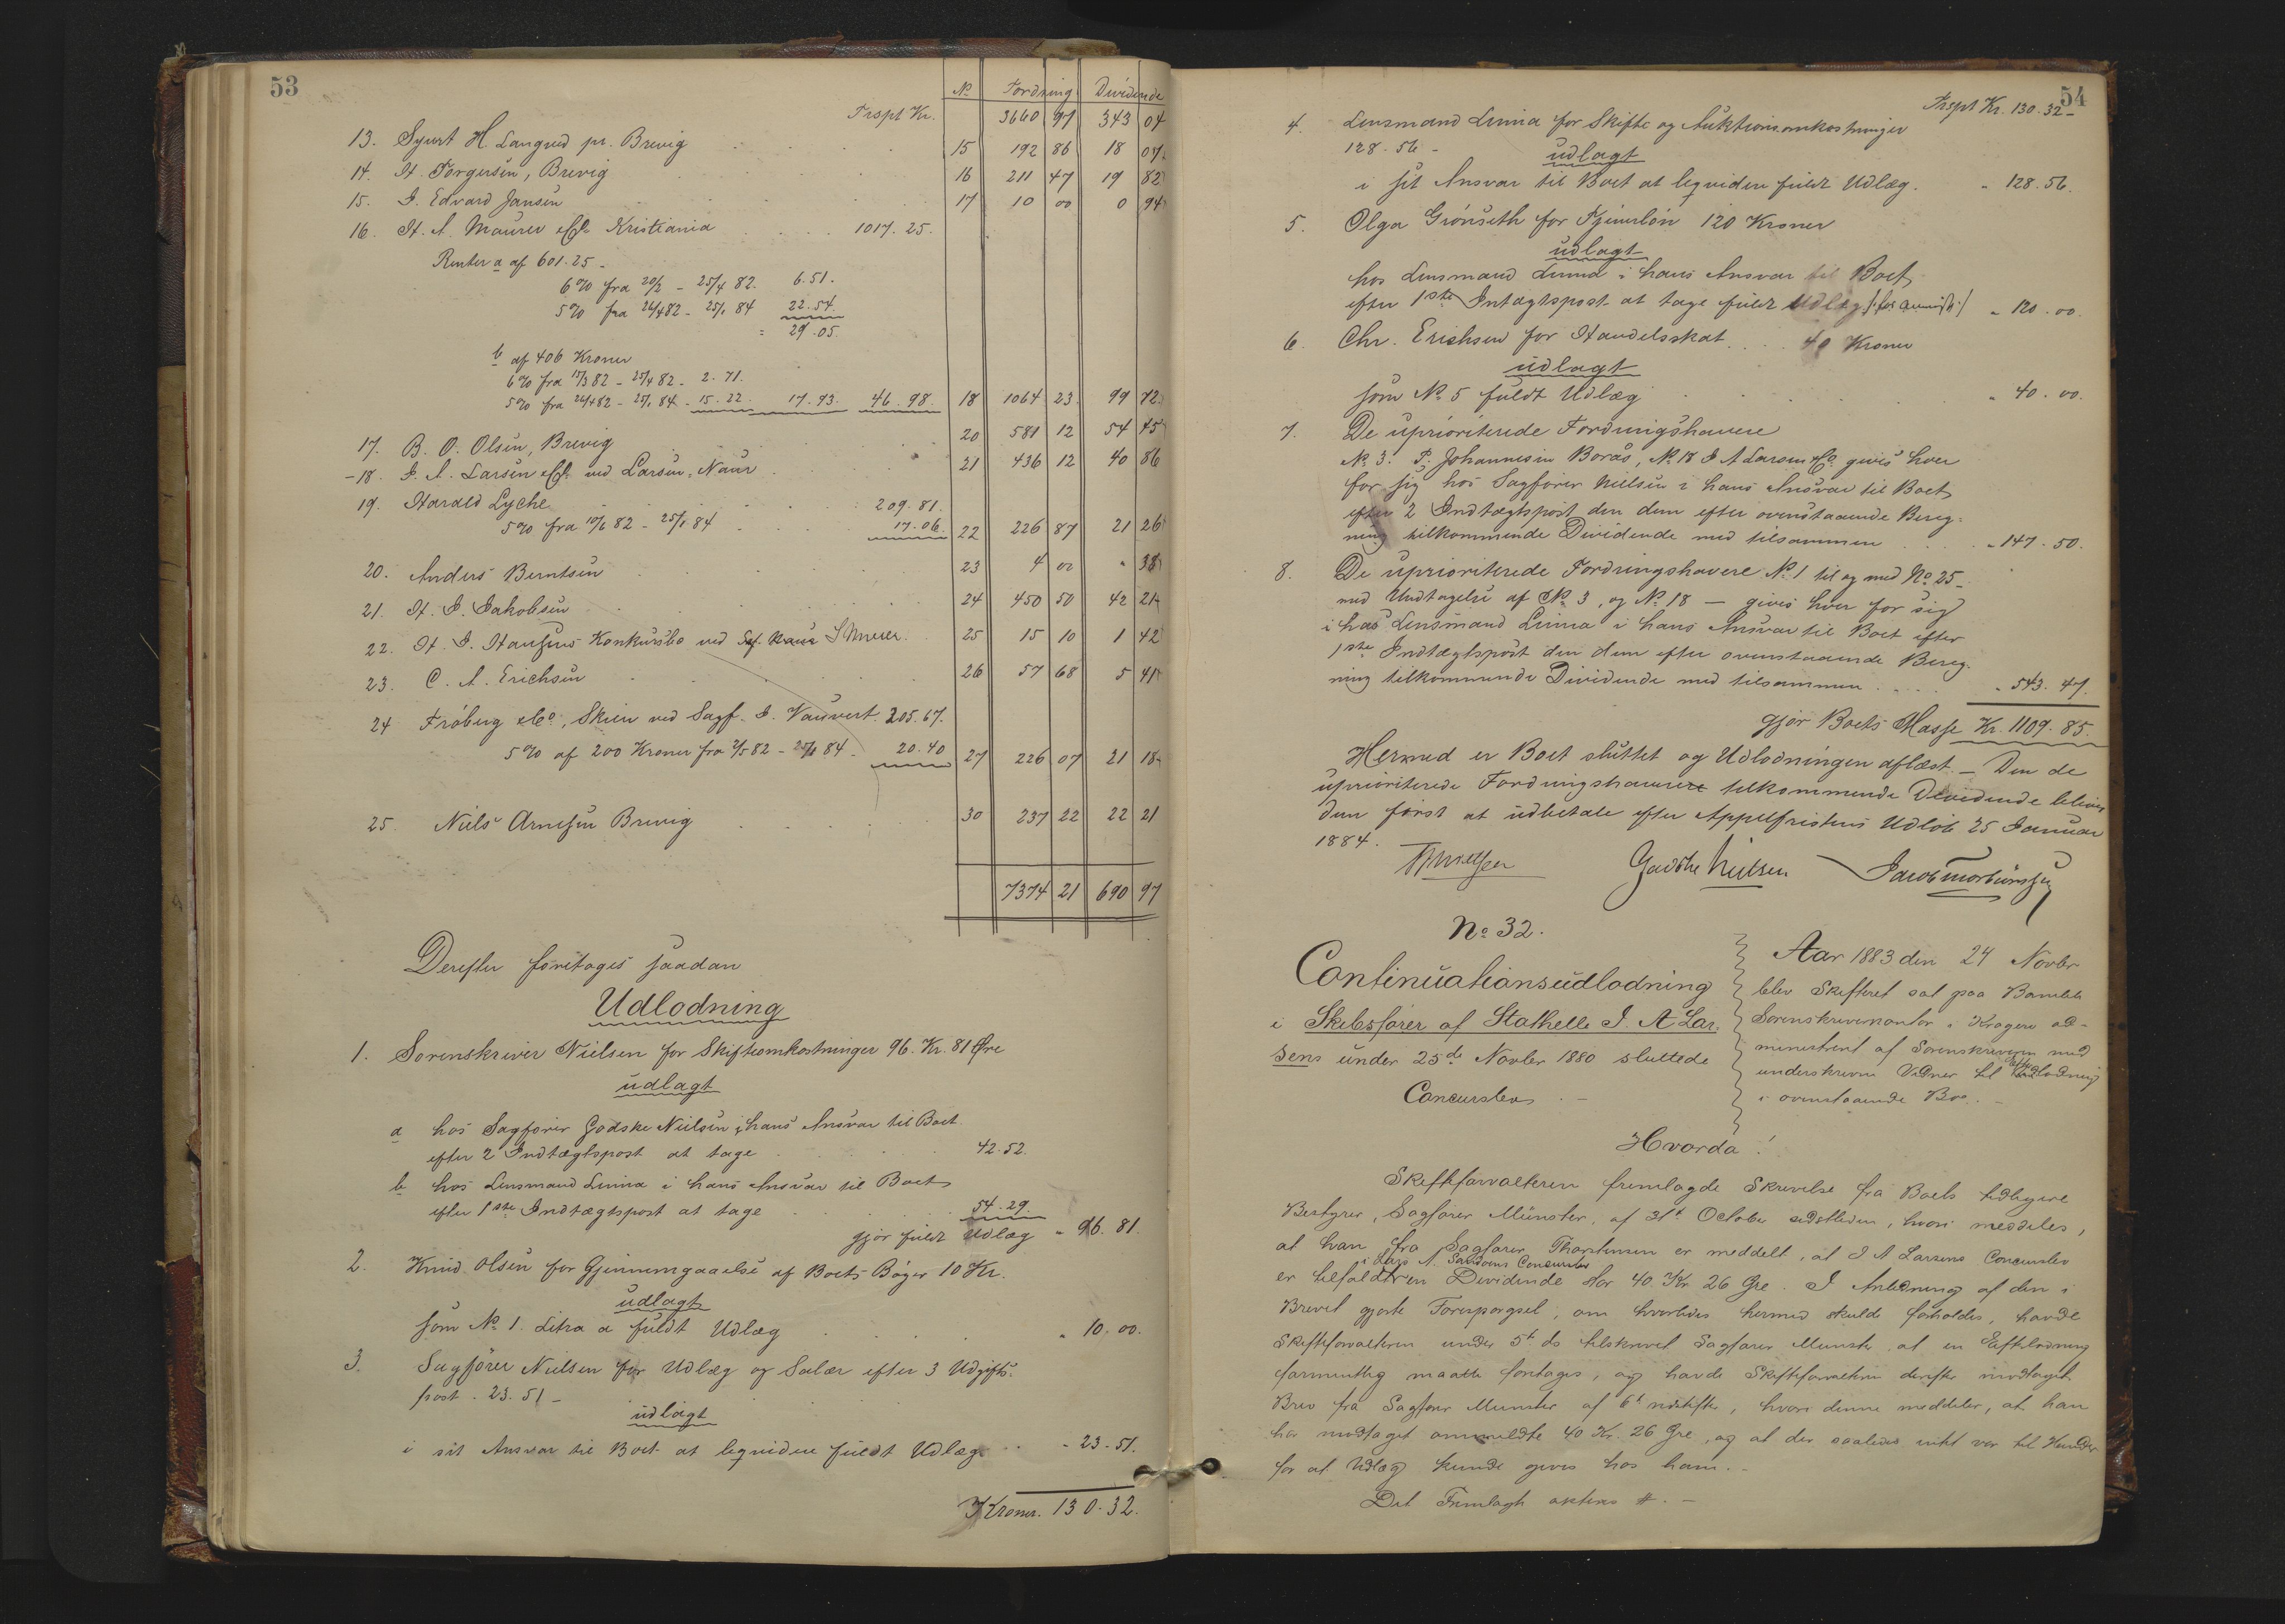 53
No Fordring Dividende
Trspt Kr. 3660 97 343 04
13. Syvert H. Langved pr. Brevig 15 192 86 18 07
14. H. Torgersen, Brevig 16 211 47 19 82
15. J. Edvard Jansen 17 10 00 0 94
16. H. A. Maurer & Co Kristiania 1017. 25.
Renter a af 601.25 -
6% fra 20/2 - 25/4 82. 6.51.
5% fra 26/4 82 - 25/1 84 22.54.
= 29.05.
b af 406 Kroner
6% fra 15/3 82 - 25/4 82 - 2.71.
5% fra 26/4 82 - 25/1 84 - 15.22. 17.93. 46.98. 18 1064 23 99 72
17. B. O. Olsen, Brevig 20 581 12 54 45
- 18. J. A. Larsen & Co. ved Larsen, Naur 21 436 12 40 86
19. Harald Lyche 209.81.
5% fra 10/6 82 - 25/1 84 17.06. 22 226 87 21 26
20. Anders Berntsen 23 4 00 " 38
21. H. J. Jakobsen 24 450 50 42 21
22. H. J. Hansens Konkursbo ved Sagf. 25 15 10 1 42
23. C. A. Erichsen 26 57 68 5 41
24 Fröberg & Co, Skien ved Sagf. J. Vauvert. 205.67.
5% af 200 Kroner fra 2/5 82 - 25/1 84 - 20.40 27 226 07 21 18
25. Niels Arnesen Brevig 30 237 22 22 21
7374 21 690 97
Derefter foretoges saadan
Udlodning
1. Sorenskriver Nielsen for Skifteomkostninger 96. Kr. 81 Øre
udlagt
a hos Sagfører Godske Nielsen i hans Ansvar til Boet
efter 2 Indtægtspost at tage 42.52.
b hos Lensmand Linna i hans Ansvar til Boet
efter 1ste Indtægtspost at tage 54.29.
gjør fuldt Udlæg " 96.81.
2. Knud Olsen for Gjennemgaaelse af Boets Bøger 10 Kr.
udlagt
som No 1. Litra a fuldt Udlæg " 10.00.
3. Sagfører Nielsen for Udlæg og Salær efter 3 Udgifts-
post. 23.51 -
udlagt
i sit Ansvar til Boet at liqvidere fuldt Udlæg - 23.51.
Kroner. 130.32.
54
Trspt Kr. 130.32 -
4. Lensmand Linna for Skifte og Auktionsomkostninger
128.56 -
udlagt
i sit Ansvar til Boet at liqvidere fuldt Udlæg. " 128.56.
5. Olga Grönseth for Tjenerløn 120 Kroner
udlagt
hos Lensmand Linna i hans Ansvar til Boet
efter 1ste Intægtspost at tage fuldt Udlæg " 120.00.
6. Chr. Erichsen for Handelsskat 40 Kroner
udlagt
som No 5 fuldt Udlæg " 40.00.
7. De uprioriterede Fordringshavere
No 3. P. Johannesen Borås, No 18 J A Larsen & Co. gives hver
for sig hos Sagfører Nielsen i hans Ansvar til Boet
efter 2 Indtægtspost den dem efter ovenstaaende Bereg-
ning tilkommende Dividende med tilsammen " 147.50.
8. De uprioriterede Fordringshavere No 1 til og med No 25 -
med Undtagelse af No 3, og No 18 — gives hver for sig
i hos Lensmand Linna i hans Ansvar til Boet efter
1ste Indtægtspost den dem efter ovenstaaende Bereg-
ning tilkommende Dividende med tilsammen " 543.47.
gjør Boets Masse Kr. 1109.85.
Hermed er Boet sluttet og Udlodningen aflæst. - Den de
uprioriterede Fordringshavere tilkommende Dividende bliver
dem først at udbetale efter Appelfristens Udløb 25 Januar
1884.
Nielsen Godske Nielsen Jacob Mortensen
No 32.
Continuationsudlodning
i Skibsfører af Stathelle J. A Lar-
sens under 25de Novbr 1880 sluttede
Concursbo. -
Aar 1883 den 24 Novbr
blev Skifteret sat paa Bamble
Sorenskriverkontor i Kragerø ad-
ministreret af Sorenskriveren med
underskrevne Vidner til Efterlodning
i ovenstaaende Bo. -
Hvorda!
Skifteforvalteren fremlagde Skrivelse fra Boets tidligere
Bestyrer, Sagfører Münster, af 31te October sidstleden, hvori meddeles,
at han fra Sagfører Thorstensen er meddelt, at J A Larsens Concursbo
i Lars N. Concursbo
er tilfaldt en Dividende stor 40 Kr. 26 Øre. I Anledning af den i
Brevet gjorte Forespørgsel, om hvorledes hermed skulde forholdes, havde
Skifteforvalteren under 5te ds tilskrevet Sagfører Munster at en Efterlodning
formentlig maatte foretages, og havde Skifteforvalteren derefter modtaget
Brev fra Sagfører Munster af 6te, hvori denne meddeler, at han
har modtaget anmeldte 40 Kr. 26 Øre, og at der saaledes intet var til Hinder
for at Udlæg kunde gives hos ham. -
Det Fremlagte akteres #. -